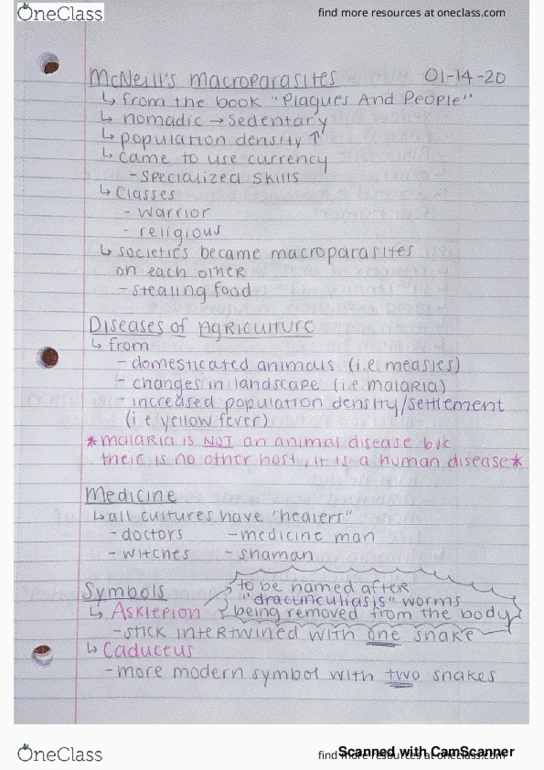 OneClass
find more resources at oneclass.com
McNeill's macroparasites 01-14-20
↳ from the book "Plagues And People"
↳ nomadic → Sedentary
↳ population density ↑
↳ came to use currency
- specialized skills
↳ Classes
- warrior
- religious
↳ societies became macroparasites
on each other
- stealing food
Diseases of Agriculture
↳ from
- domesticated animals (i.e measles)
- changes in landscape (i.e malaria)
- increased population density/settlement
(i.e yellow fever)
*malaria is NOT an animal disease b/c
their is no other host, it is a human disease*
Medicine
↳ all cultures have "healers"
- doctors - medicine man
- witches - shaman
Symbols
to be named after
"dracunculiasis" worms
being removed from the body
↳ Asklepion
- stick intertwined with one snake
↳ Caduceus
- more modern symbol with two snakes
OneClass
find more resources at oneclass.com
Scanned with CamScanner